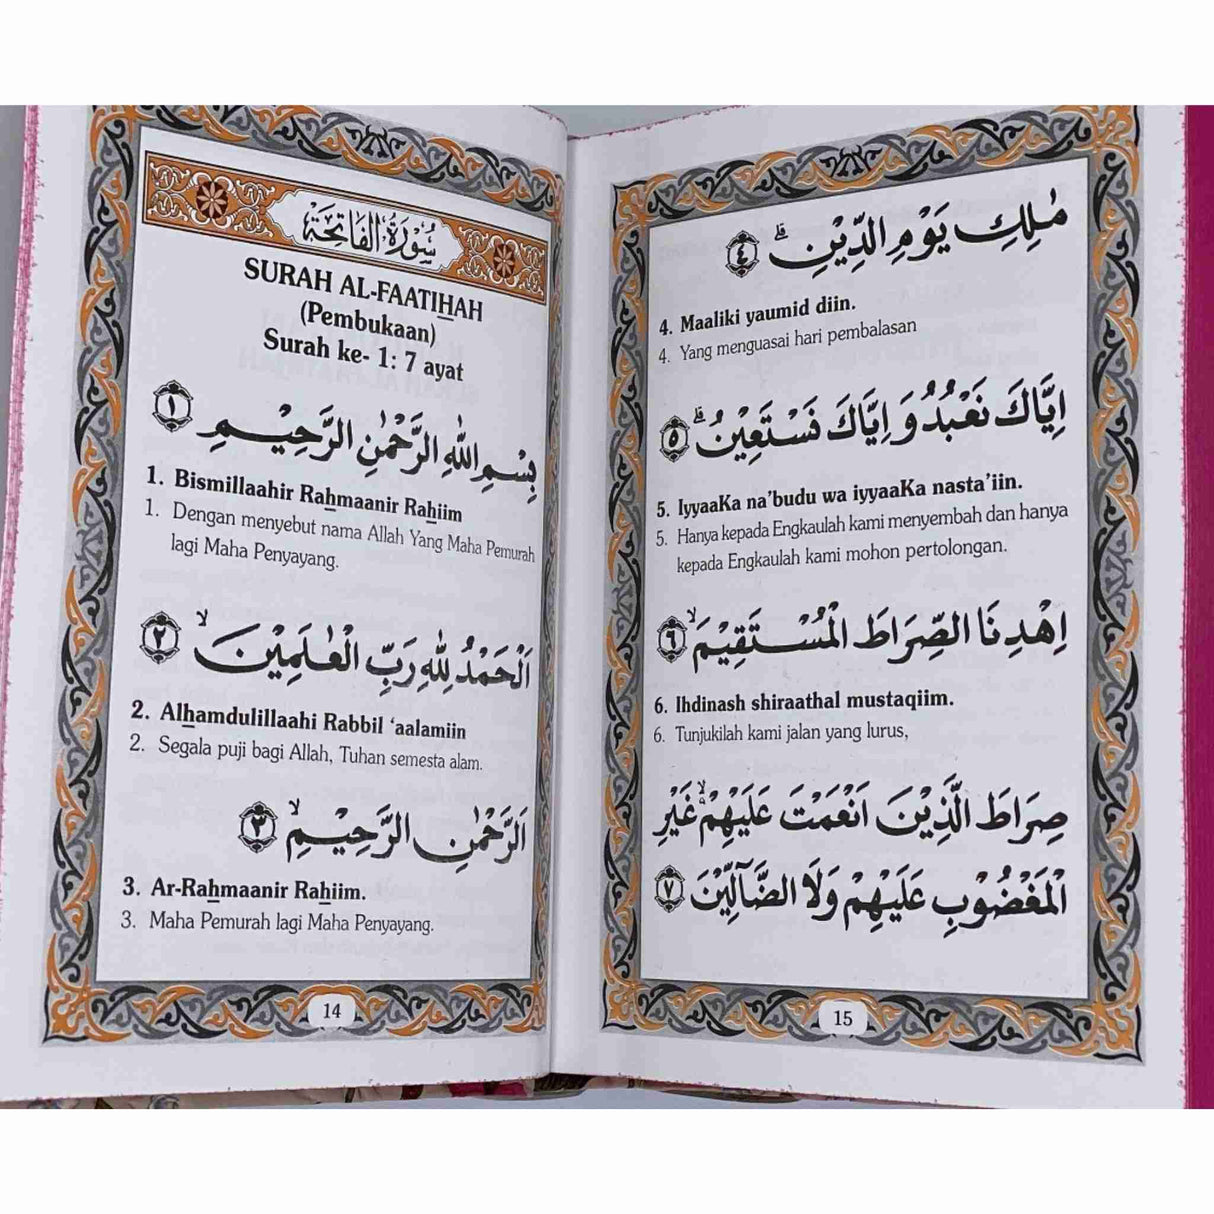 سُوْرَةُ الْفَاتِحَةِ
SURAH AL-FAATIHAH
(Pembukaan)
Surah ke- 1: 7 ayat
بِسْمِ اللّٰهِ الرَّحْمٰنِ الرَّحِيْمِ ١
1. Bismillaahir Rahmaanir Rahiim
1. Dengan menyebut nama Allah Yang Maha Pemurah
lagi Maha Penyayang.
اَلْحَمْدُ لِلّٰهِ رَبِّ الْعٰلَمِيْنَۙ ٢
2. Alhamdulillaahi Rabbil ‘aalamiin
2. Segala puji bagi Allah, Tuhan semesta alam.
اَلرَّحْمٰنِ الرَّحِيْمِۙ ٣
3. Ar-Rahmaanir Rahiim.
3. Maha Pemurah lagi Maha Penyayang.
14
مٰلِكِ يَوْمِ الدِّيْنِۗ ٤
4. Maaliki yaumid diin.
4. Yang menguasai hari pembalasan
اِيَّاكَ نَعْبُدُ وَاِيَّاكَ نَسْتَعِيْنُۗ ٥
5. IyyaaKa na’budu wa iyyaaKa nasta’iin.
5. Hanya kepada Engkaulah kami menyembah dan hanya
kepada Engkaulah kami mohon pertolongan.
اِهْدِنَا الصِّرَاطَ الْمُسْتَقِيْمَۙ ٦
6. Ihdinash shiraathal mustaqiim.
6. Tunjukilah kami jalan yang lurus,
صِرَاطَ الَّذِيْنَ اَنْعَمْتَ عَلَيْهِمْ ۙ غَيْرِ
الْمَغْضُوْبِ عَلَيْهِمْ وَلَا الضَّآلِّيْنَ ٧
15